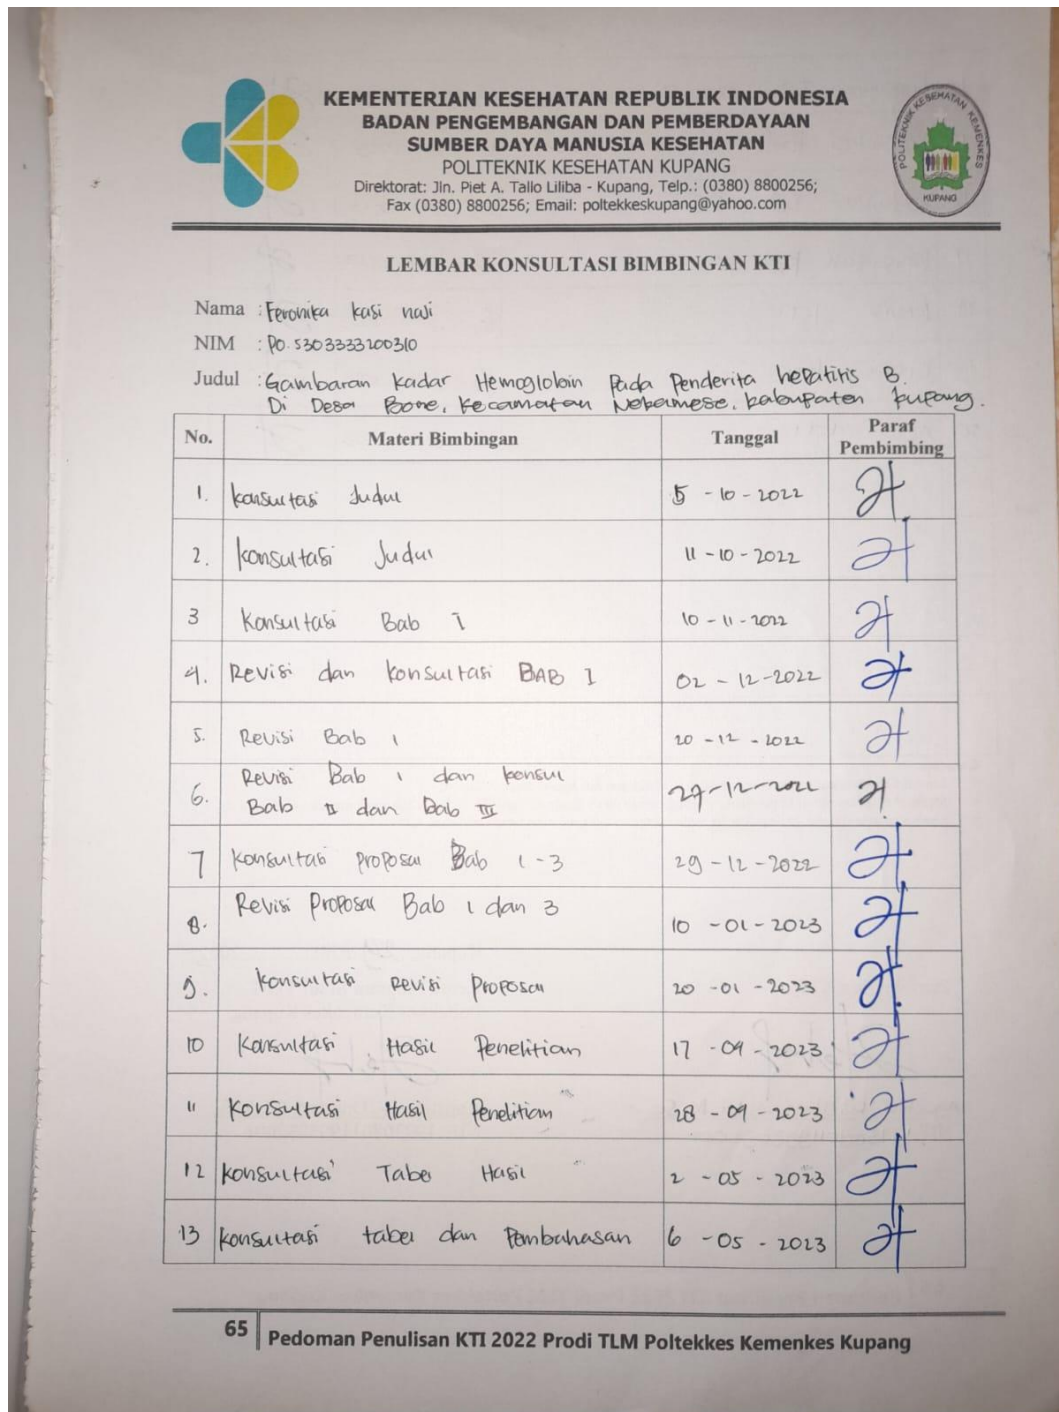 KEMENTERIAN KESEHATAN REPUBLIK INDONESIA
BADAN PENGEMBANGAN DAN PEMBERDAYAAN
SUMBER DAYA MANUSIA KESEHATAN
POLITEKNIK KESEHATAN KUPANG
Direktorat: Jln. Piet A. Tallo Liliba - Kupang, Telp.: (0380) 8800256;
Fax (0380) 8800256; Email: poltekkeskupang@yahoo.com
POLITEKNIK KESEHATAN KEMENKES
KUPANG
LEMBAR KONSULTASI BIMBINGAN KTI
Nama : Feronika kasi naji
NIM : PO. 5303333200310
Judul : Gambaran Kadar Hemoglobin Pada Penderita hepatitis B.
Di Desa Bone, Kecamatan Nekamese, kabupaten kupang.
No. Materi Bimbingan Tanggal Paraf Pembimbing
1. konsultasi Judul 5 - 10 - 2022
2. konsultasi Judul 11 - 10 - 2022
3 Konsultasi Bab I 10 - 11 - 2022
4. Revisi dan konsultasi BAB I 02 - 12 - 2022
5. Revisi Bab 1 20 - 12 - 2022
6. Revisi Bab 1 dan konsul 27-12-2022
Bab II dan Bab III
7 Konsultasi proposal Bab 1-3 29 - 12 - 2022
8. Revisi Proposal Bab 1 dan 3 10 - 01 - 2023
9. konsultasi Revisi Proposal 20 - 01 - 2023
10 Konsultasi Hasil Penelitian 17 - 04 - 2023
11 Konsultasi Hasil Penelitian 28 - 04 - 2023
12 konsultasi Tabel Hasil 2 - 05 - 2023
13 konsultasi tabel dan Pembahasan 6 - 05 - 2023
65 Pedoman Penulisan KTI 2022 Prodi TLM Poltekkes Kemenkes Kupang